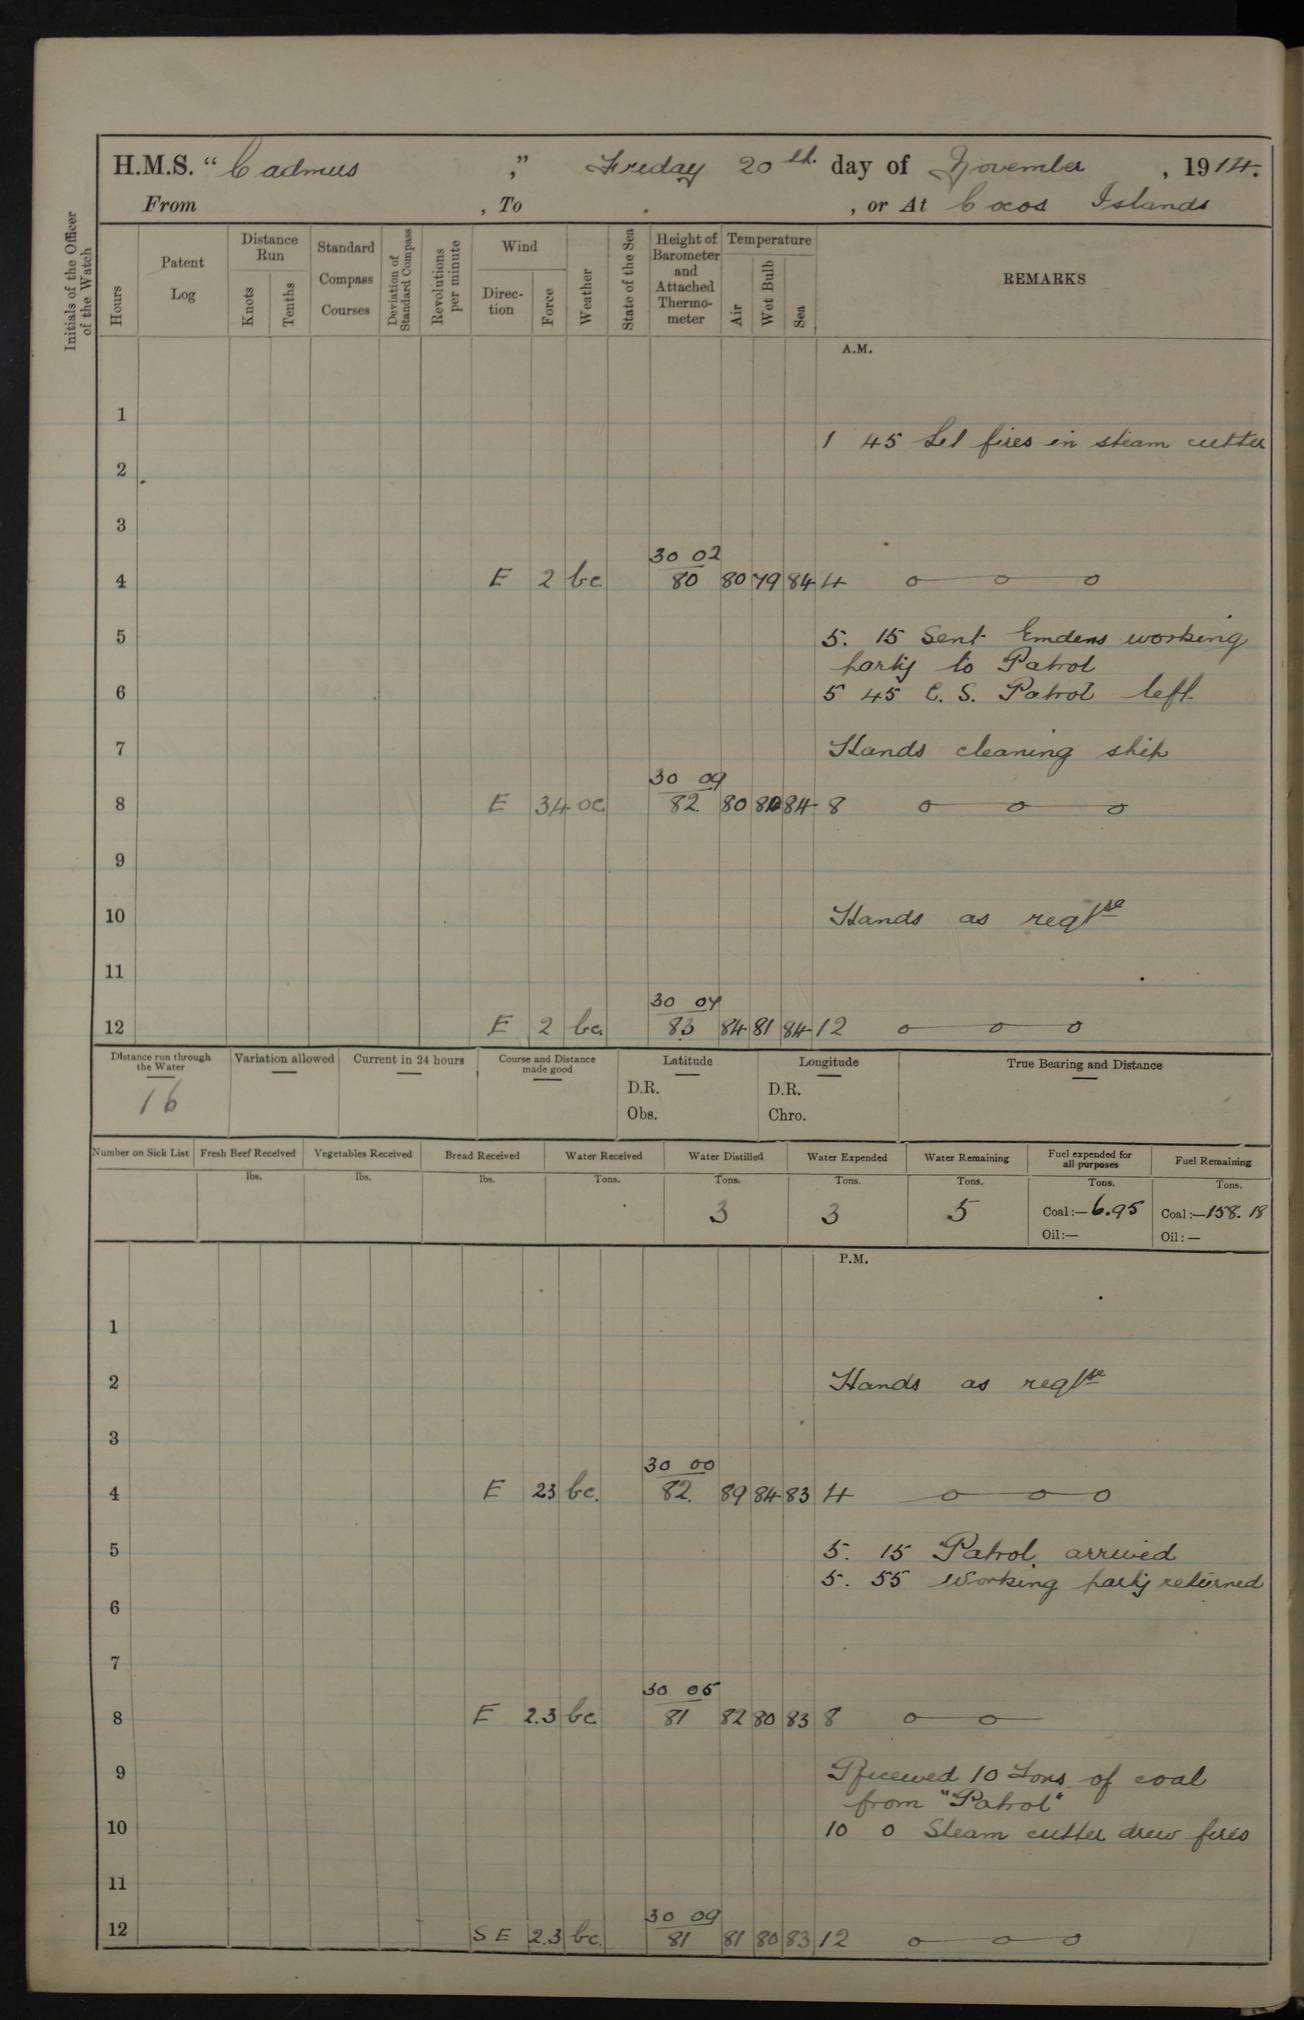 H.M.S. "Cadmus," Friday 20th day of November, 1914.
From , To , or At Cocos Islands
Initials of the Officer of the Watch
Hours
Patent Log
Distance Run
Knots
Tenths
Standard Compass Courses
Deviation of Standard Compass
Revolutions per minute
Wind
Direction
Force
Weather
State of the Sea
Height of Barometer and Attached Thermometer
Temperature
Air
Wet Bulb
Sea
REMARKS
A.M.
1
1 45 Let fires in steam cutter
2
3
30 02
4 E 2 bc 80 80 79 84 4 o—o—o
5 5. 15 Sent Emdens working
party to Patrol
6 5 45 C. S. Patrol left
7 Hands cleaning ship
30 09
8 E 34 oc 82 80 84 8 o—o—o
9
10 Hands as reqse
11
30 07
12 E 2 bc. 83 84 81 84 12 o—o—o
Distance run through the Water
Variation allowed
Current in 24 hours
Course and Distance made good
Latitude
Longitude
True Bearing and Distance
16 D.R. D.R.
Obs. Chro.
Number on Sick List
Fresh Beef Received
Vegetables Received
Bread Received
Water Received
Water Distilled
Water Expended
Water Remaining
Fuel expended for all purposes
Fuel Remaining
lbs. lbs. lbs. Tons. Tons. Tons. Tons. Tons. Tons.
3 3 5 Coal:—6.95 Coal:—158.18
Oil:— Oil:—
P.M.
1
2 Hands as reqse
3
30 00
4 E 23 bc. 82. 89 84 83 4 o—o—o
5 5. 15 Patrol arrived
5. 55 Working party returned
6
7
30 05
8 E 2.3 bc 81 82 80 83 8 o—o—
9 Received 10 Tons of coal
from "Patrol"
10 10 0 Steam cutter drew fires
11
30 09
12 SE 2.3 bc. 81 81 80 83 12 o—o—o